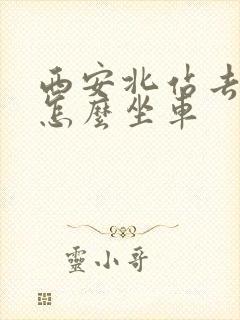 西安北佔去
怎麼坐車
靈小哥